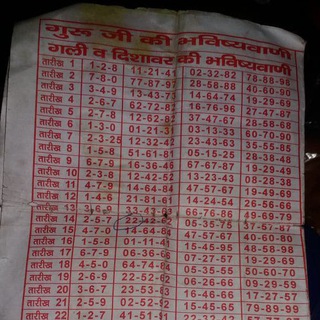 गुरू जी की भविष्यवाणी
गली व दिशावर की भविष्यवाणी
तारीख 1 1-2-8 11-21-41 02-32-82 78-88-98
तारीख 2 7-8-0 77-87-37 28-58-88 40-60-90
तारीख 3 3-4-9 13-43-73 14-64-74 19-29-69
तारीख 4 2-6-7 62-72-82 16-76-96 17-27-67
तारीख 5 2-7-8 12-62-82 37-47-67 26-58-68
तारीख 6 1-3-0 01-21-31 03-13-33 60-70-90
तारीख 7 2-3-25 12-32-42 53-73-83 15-35-75
तारीख 8 1-5-8 51-61-81 05-15-25 28-38-48
तारीख 9 6-7-9 16-36-46 47-57-87 19-49-59
तारीख 10 2-3-8 12-42-52 13-23-43 08-28-38
तारीख 11 4-7-9 14-64-84 47-57-67 19-39-69
तारीख 12 1-4-6 21-81-61 14-24-54 16-36-46
तारीख 13 33-43-98 66-76-86 49-69-79
तारीख 14 05-35-75 37-57-87
तारीख 15 4-7-0 14-64-84 47-57-67 40-60-80
तारीख 16 1-5-8 01-11-41 15-45-95 48-58-98
तारीख 17 6-7-9 06-36-66 47-57-67 39-49-79
तारीख 18 4-5-0 54-64-84 15-45-55 50-60-80
तारीख 19 2-6-9 22-52-62 06-26-66 09-29-39
तारीख 20 3-6-7 23-53-63 16-46-56 17-27-57
तारीख 21 2-5-9 02-52-62 35-55-65 09-79-89
तारीख 22 1-2-4 41-51-81